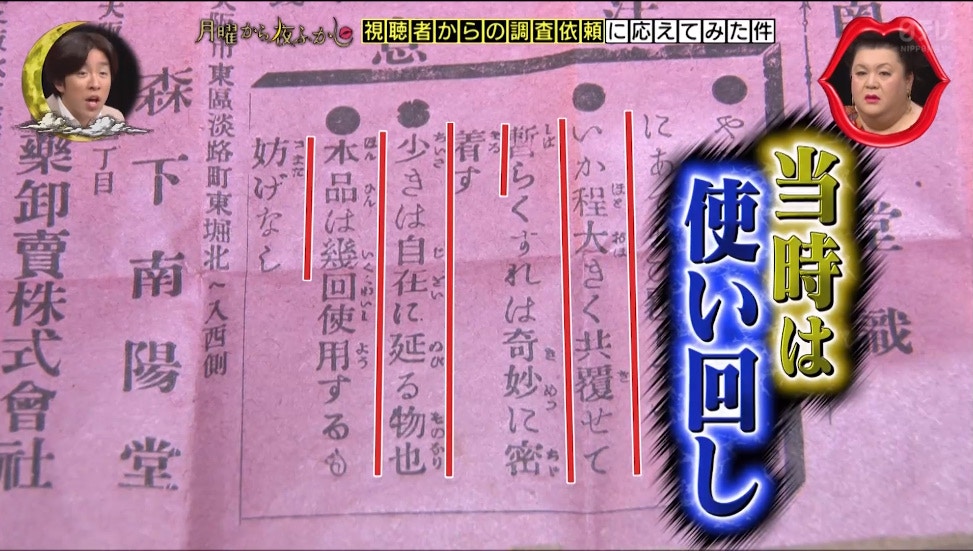 月曜から夜ふかし
視聴者からの調査依頼に応えてみた件
日テレ
当時は
使い回し
注意
●や
にあ
●いか程大きく共覆せて
暫らくすれは奇妙に密
着す
●少きは自在に延る物也
●本品は幾回使用するも
妨げなし
川東區淡路町東堀北へ入西側
森下南陽堂
丁目
藥卸賣株式會社